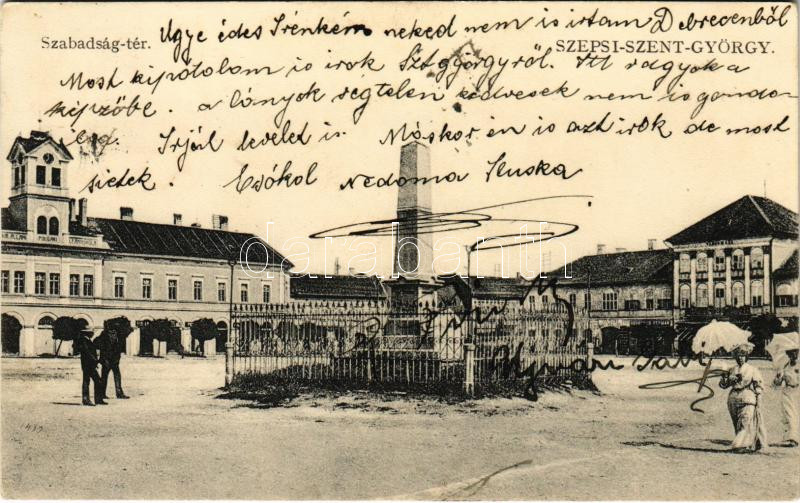 Szabadság-tér.
SZEPSI-SZENT-GYÖRGY.
Ugye édes Irénkém neked nem is irtam Debrecenből
Most kipótolom is irok Sztgyörgyről. Itt vagyok a
képzőbe. a lányok végtelen kedvesek nem is gondo-
lod. Irjál levelet is. Máskor én is azt irok de most
sietek. Csókol Nedoma Iluska
darabanth